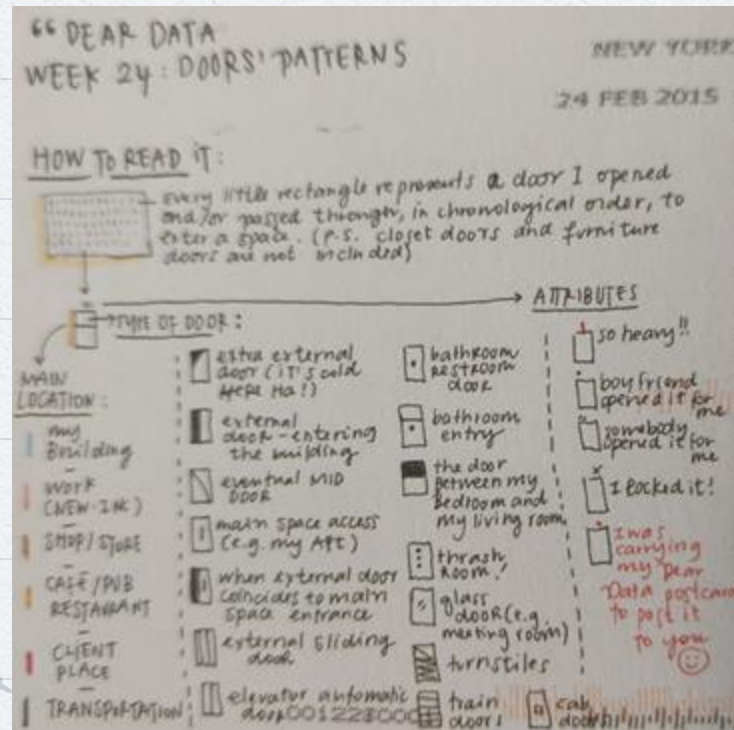 “ DEAR DATA
WEEK 24: DOORS' PATTERNS
NEW YORK
24 FEB 2015
HOW TO READ IT:
every little rectangle represents a door I opened
and/or passed through, in chronological order, to
enter a space. (P.S. closet doors and furniture
doors are not included)
ATTRIBUTES
TYPE OF DOOR:
MAIN
LOCATION:
my
Building
WORK
(NEW-INC)
SHOP/STORE
CAFÉ/PUB
RESTAURANT
CLIENT
PLACE
TRANSPORTATION
extra external
door (it's cold
HERE Ha!)
external
door - entering
the building
eventual MID
DOOR
main space access
(e.g. my APt)
when external door
coincides to main
space entrance
external sliding
door
elevator automatic
door
bathroom
restroom
door
bathroom
entry
the door
between my
bedroom and
my living room
thrash
ROOM!
glass
door (e.g.
meeting room)
turnstiles
train
doors
cab
door
so heavy!!
boyfriend
opened it for
me
somebody
opened it for
me
I locked it!
I was
carrying
my Dear
Data postcard
to post it
to you